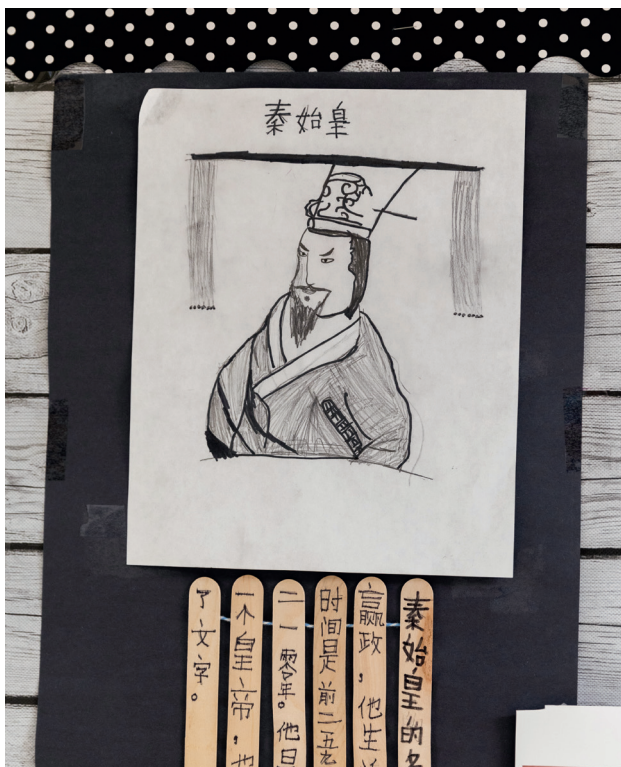 秦始皇
秦始皇的名
赢政，他生
时间是前二五九
二一零年。他
一个皇帝，
了文字。